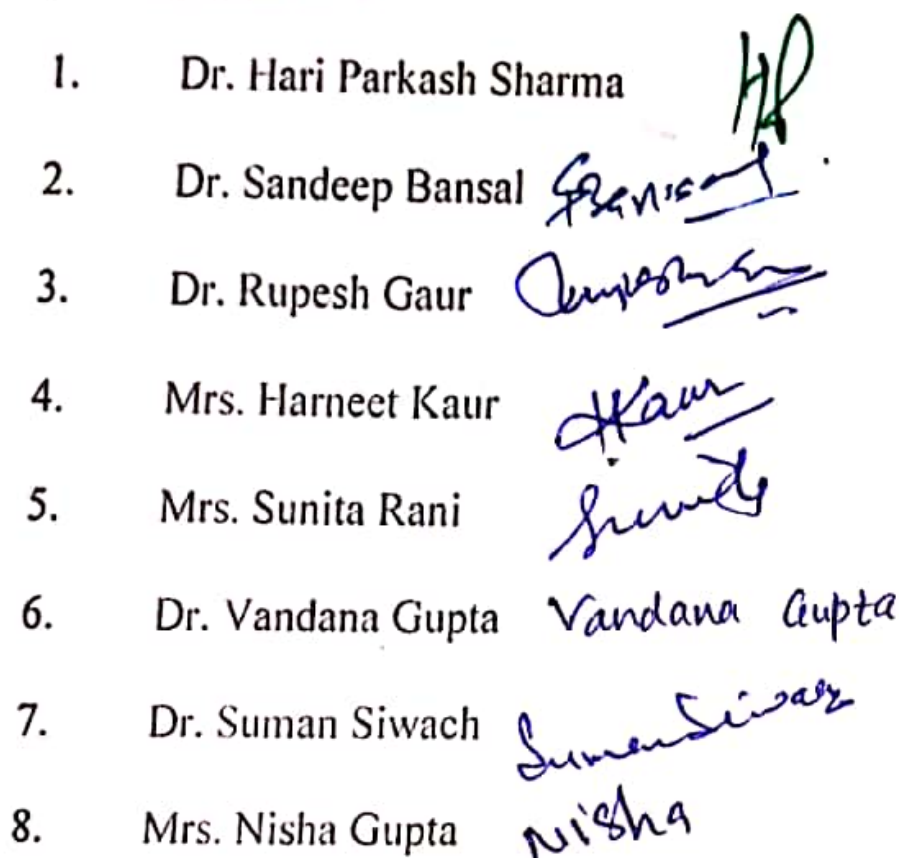 1. Dr. Hari Parkash Sharma HP
2. Dr. Sandeep Bansal SBansal
3. Dr. Rupesh Gaur
4. Mrs. Harneet Kaur HKaur
5. Mrs. Sunita Rani Sunita
6. Dr. Vandana Gupta Vandana Gupta
7. Dr. Suman Siwach Suman Siwach
8. Mrs. Nisha Gupta Nisha